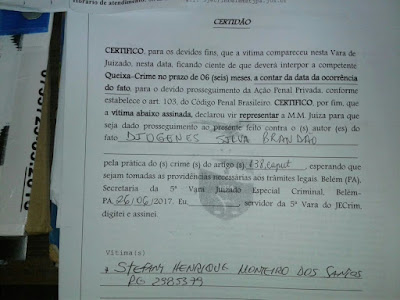 CERTIDÃO
CERTIFICO, para os devidos fins, que a vítima compareceu nesta Vara de
Juizado, nesta data, ficando ciente de que deverá interpor a competente
Queixa-Crime no prazo de 06 (seis) meses, a contar da data da ocorrência
do fato, para o devido prosseguimento da Ação Penal Privada, conforme
estabelece o art. 103, do Código Penal Brasileiro. CERTIFICO, por fim, que
a vítima abaixo assinada, declarou vir representar a M.M. Juíza para que
seja dado prosseguimento ao presente feito contra o (s) autor (es) do
fato DIOGENES SILVA BRANDÃO
pela prática do (s) crime (s) do artigo (s) 138, caput, esperando que
sejam tomadas as providências necessárias aos trâmites legais. Belém (PA),
Secretaria da 5ª Vara Juizado Especial Criminal, Belém-
PA, 26/06/2017. Eu, servidor da 5ª Vara do JECrim,
digitei e assinei.
Vítima(s)
STEFANY HENRIQUE MONTEIRO DOS SANTOS
RG 2985379